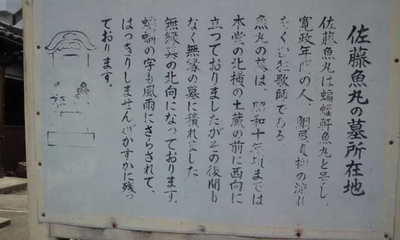 佐藤魚丸の墓所在地
佐藤魚丸は蝙蝠軒魚丸と号し、
寛政年間の人、
なく狂歌師である
魚丸の墓は、昭和十年頃までは
本堂の北横の土蔵の前に西向に
立っておりましたがその後間も
なく無縁の墓に積れました
無縁墓の北向になっております。
蝙蝠の字も風雨にさらされて、
はっきりしませんがかすかに残っ
ております。